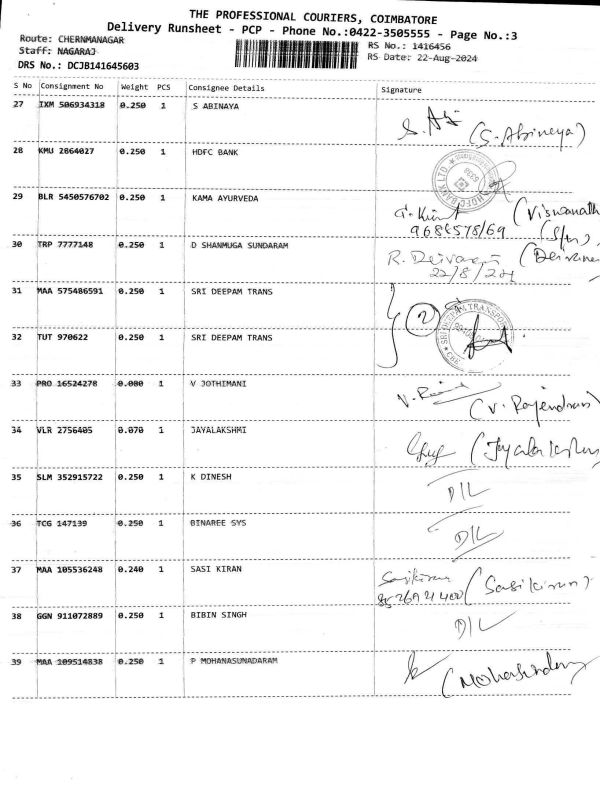 THE PROFESSIONAL COURIERS, COIMBATORE
Delivery Runsheet - PCP - Phone No.:0422-3505555 - Page No.:3
Route: CHERNMANAGAR
RS No.: 1416456
Staff: NAGARAJ
RS Date: 22-Aug-2024
DRS No.: DCJB141645603
S No Consignment No Weight PCS Consignee Details Signature
27 IXM 506934318 0.250 1 S ABINAYA
(S. Abineya)
28 KMU 2864027 0.250 1 HDFC BANK
HDFC BANK LTD
29 BLR 5450576702 0.250 1 KAMA AYURVEDA
(Viswanath
30 TRP 7777148 0.250 1 D SHANMUGA SUNDARAM
22/8/
31 MAA 575486591 0.250 1 SRI DEEPAM TRANS
2
SRI DEEPAM TRANSPORT
32 TUT 970622 0.250 1 SRI DEEPAM TRANS
33 PRO 16524278 0.080 1 V JOTHIMANI
(V. Rajendran)
34 VLR 2756405 0.070 1 JAYALAKSHMI
35 SLM 352915722 0.250 1 K DINESH
D/L
36 TCG 147139 0.250 1 BINAREE SYS
D/L
37 MAA 105536248 0.240 1 SASI KIRAN
Sasikiran (Sasikiran)
38 GGN 911072889 0.250 1 BIBIN SINGH
D/L
39 MAA 109514838 0.250 1 P MOHANASUNADARAM